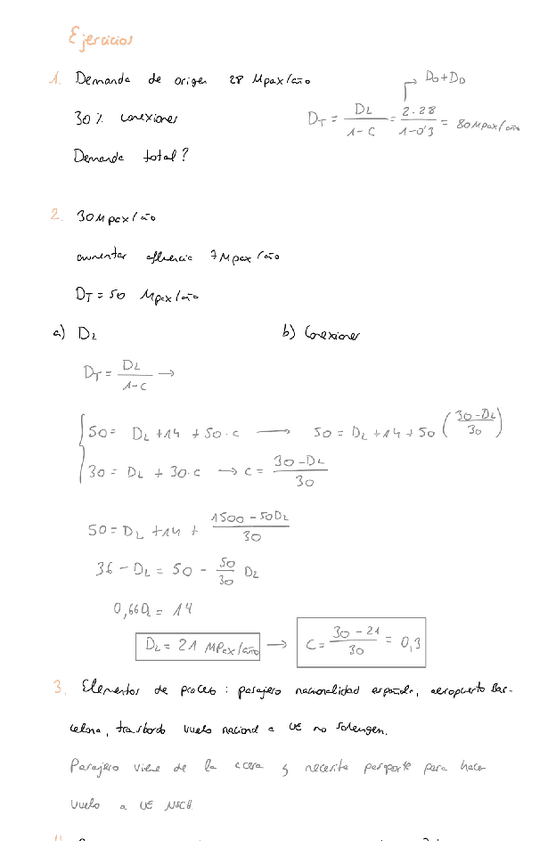 Ejercicios
1. Demanda de origen 28 Mpax/año
30 % conexiones
Demanda total?
D_T = D_L / (1-C) = 2·28 / (1-0'3) = 80 Mpax/año
D_O + D_D
2. 30 Mpax/año
aumentar afluencia 7 Mpax/año
D_T = 50 Mpax/año
a) D_L
b) Conexiones
D_T = D_L / (1-C) →
50 = D_L + 14 + 50·C → 50 = D_L + 14 + 50 ((30-D_L)/30)
30 = D_L + 30·C → C = (30-D_L)/30
50 = D_L + 14 + (1500-50D_L)/30
36 - D_L = 50 - 50/30 D_L
0,66D_L = 14
D_L = 21 MPax/año → C = (30-21)/30 = 0,3
3. Elementos de proceso : pasajero nacionalidad española, aeropuerto Bar-
celona, trasbordo vuelo nacional a UE no Schengen.
Pasajero viene de la acera y necesita pasaporte para hacer
vuelo a UE NSCH